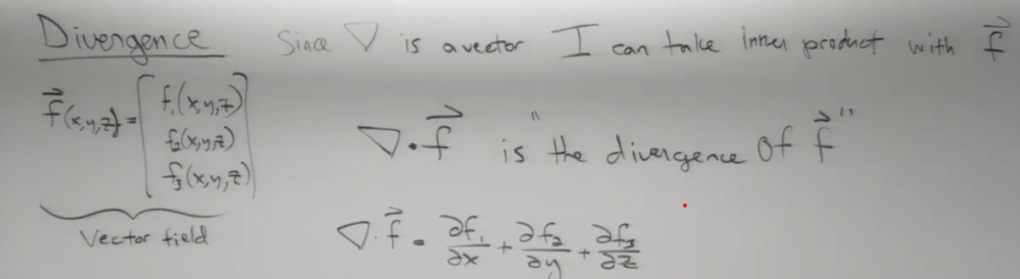 Divergence Since ∇ is a vector I can take inner product with f⃗
f⃗(x,y,z) = [f₁(x,y,z)
f₂(x,y,z)
f₃(x,y,z)]
Vector field
∇·f⃗ is "the divergence of f⃗"
∇·f⃗ = ∂f₁/∂x + ∂f₂/∂y + ∂f₃/∂z